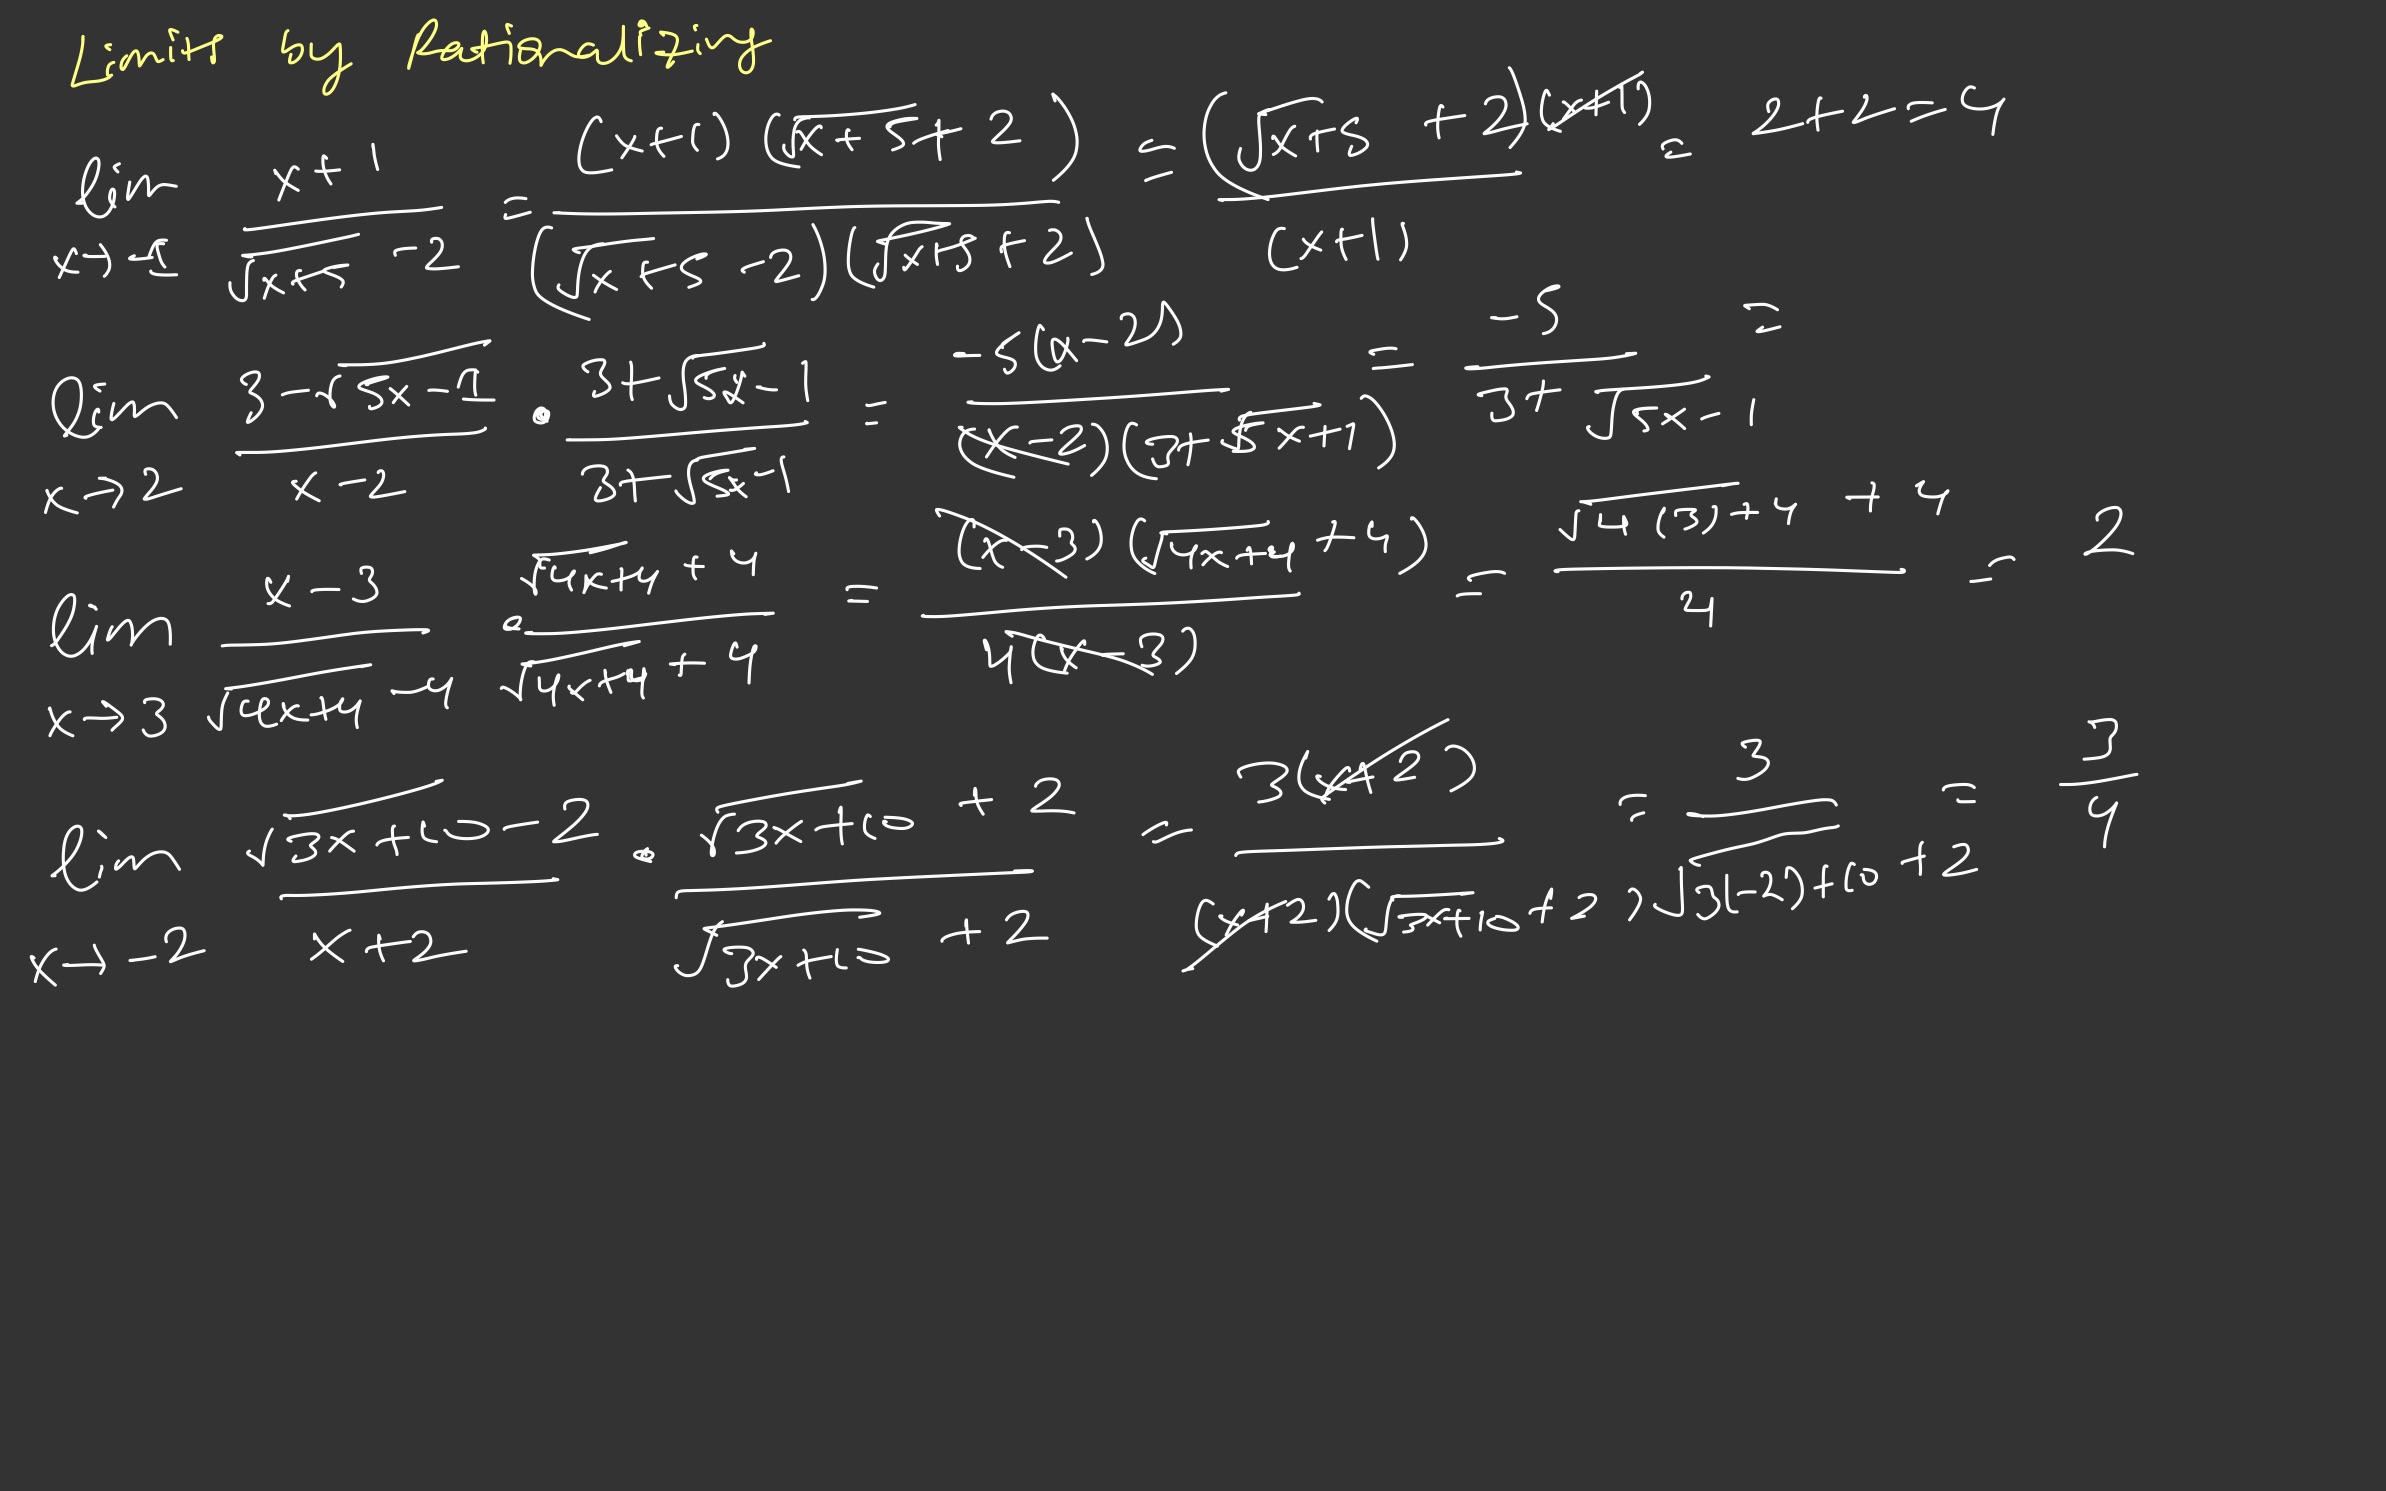 Limits by Rationalizing
lim x→-1 (x+1)/(√(x+5) -2) = (x+1)(√(x+5)+2)/((√(x+5) -2)(√(x+5)+2)) = (√(x+5) +2)(x+1)/(x+1) = 2+2=4
lim x→2 (3-√(5x-1))/(x-2) · (3+√(5x-1))/(3+√(5x-1)) = -5(x-2)/((x-2)(3+√(5x+1))) = -5/(3+√(5x-1)) =
lim x→3 (x-3)/(√(4x+4) -4) · (√(4x+4)+4)/(√(4x+4)+4) = (x-3)(√(4x+4)+4)/(4(x-3)) = (√(4(3)+4) +4)/4 = 2
lim x→-2 (√(3x+10)-2)/(x+2) · (√(3x+10) +2)/(√(3x+10) +2) = 3(x+2)/((x+2)(√(3x+10)+2)) = 3/(√(3(-2)+10) +2) = 3/4